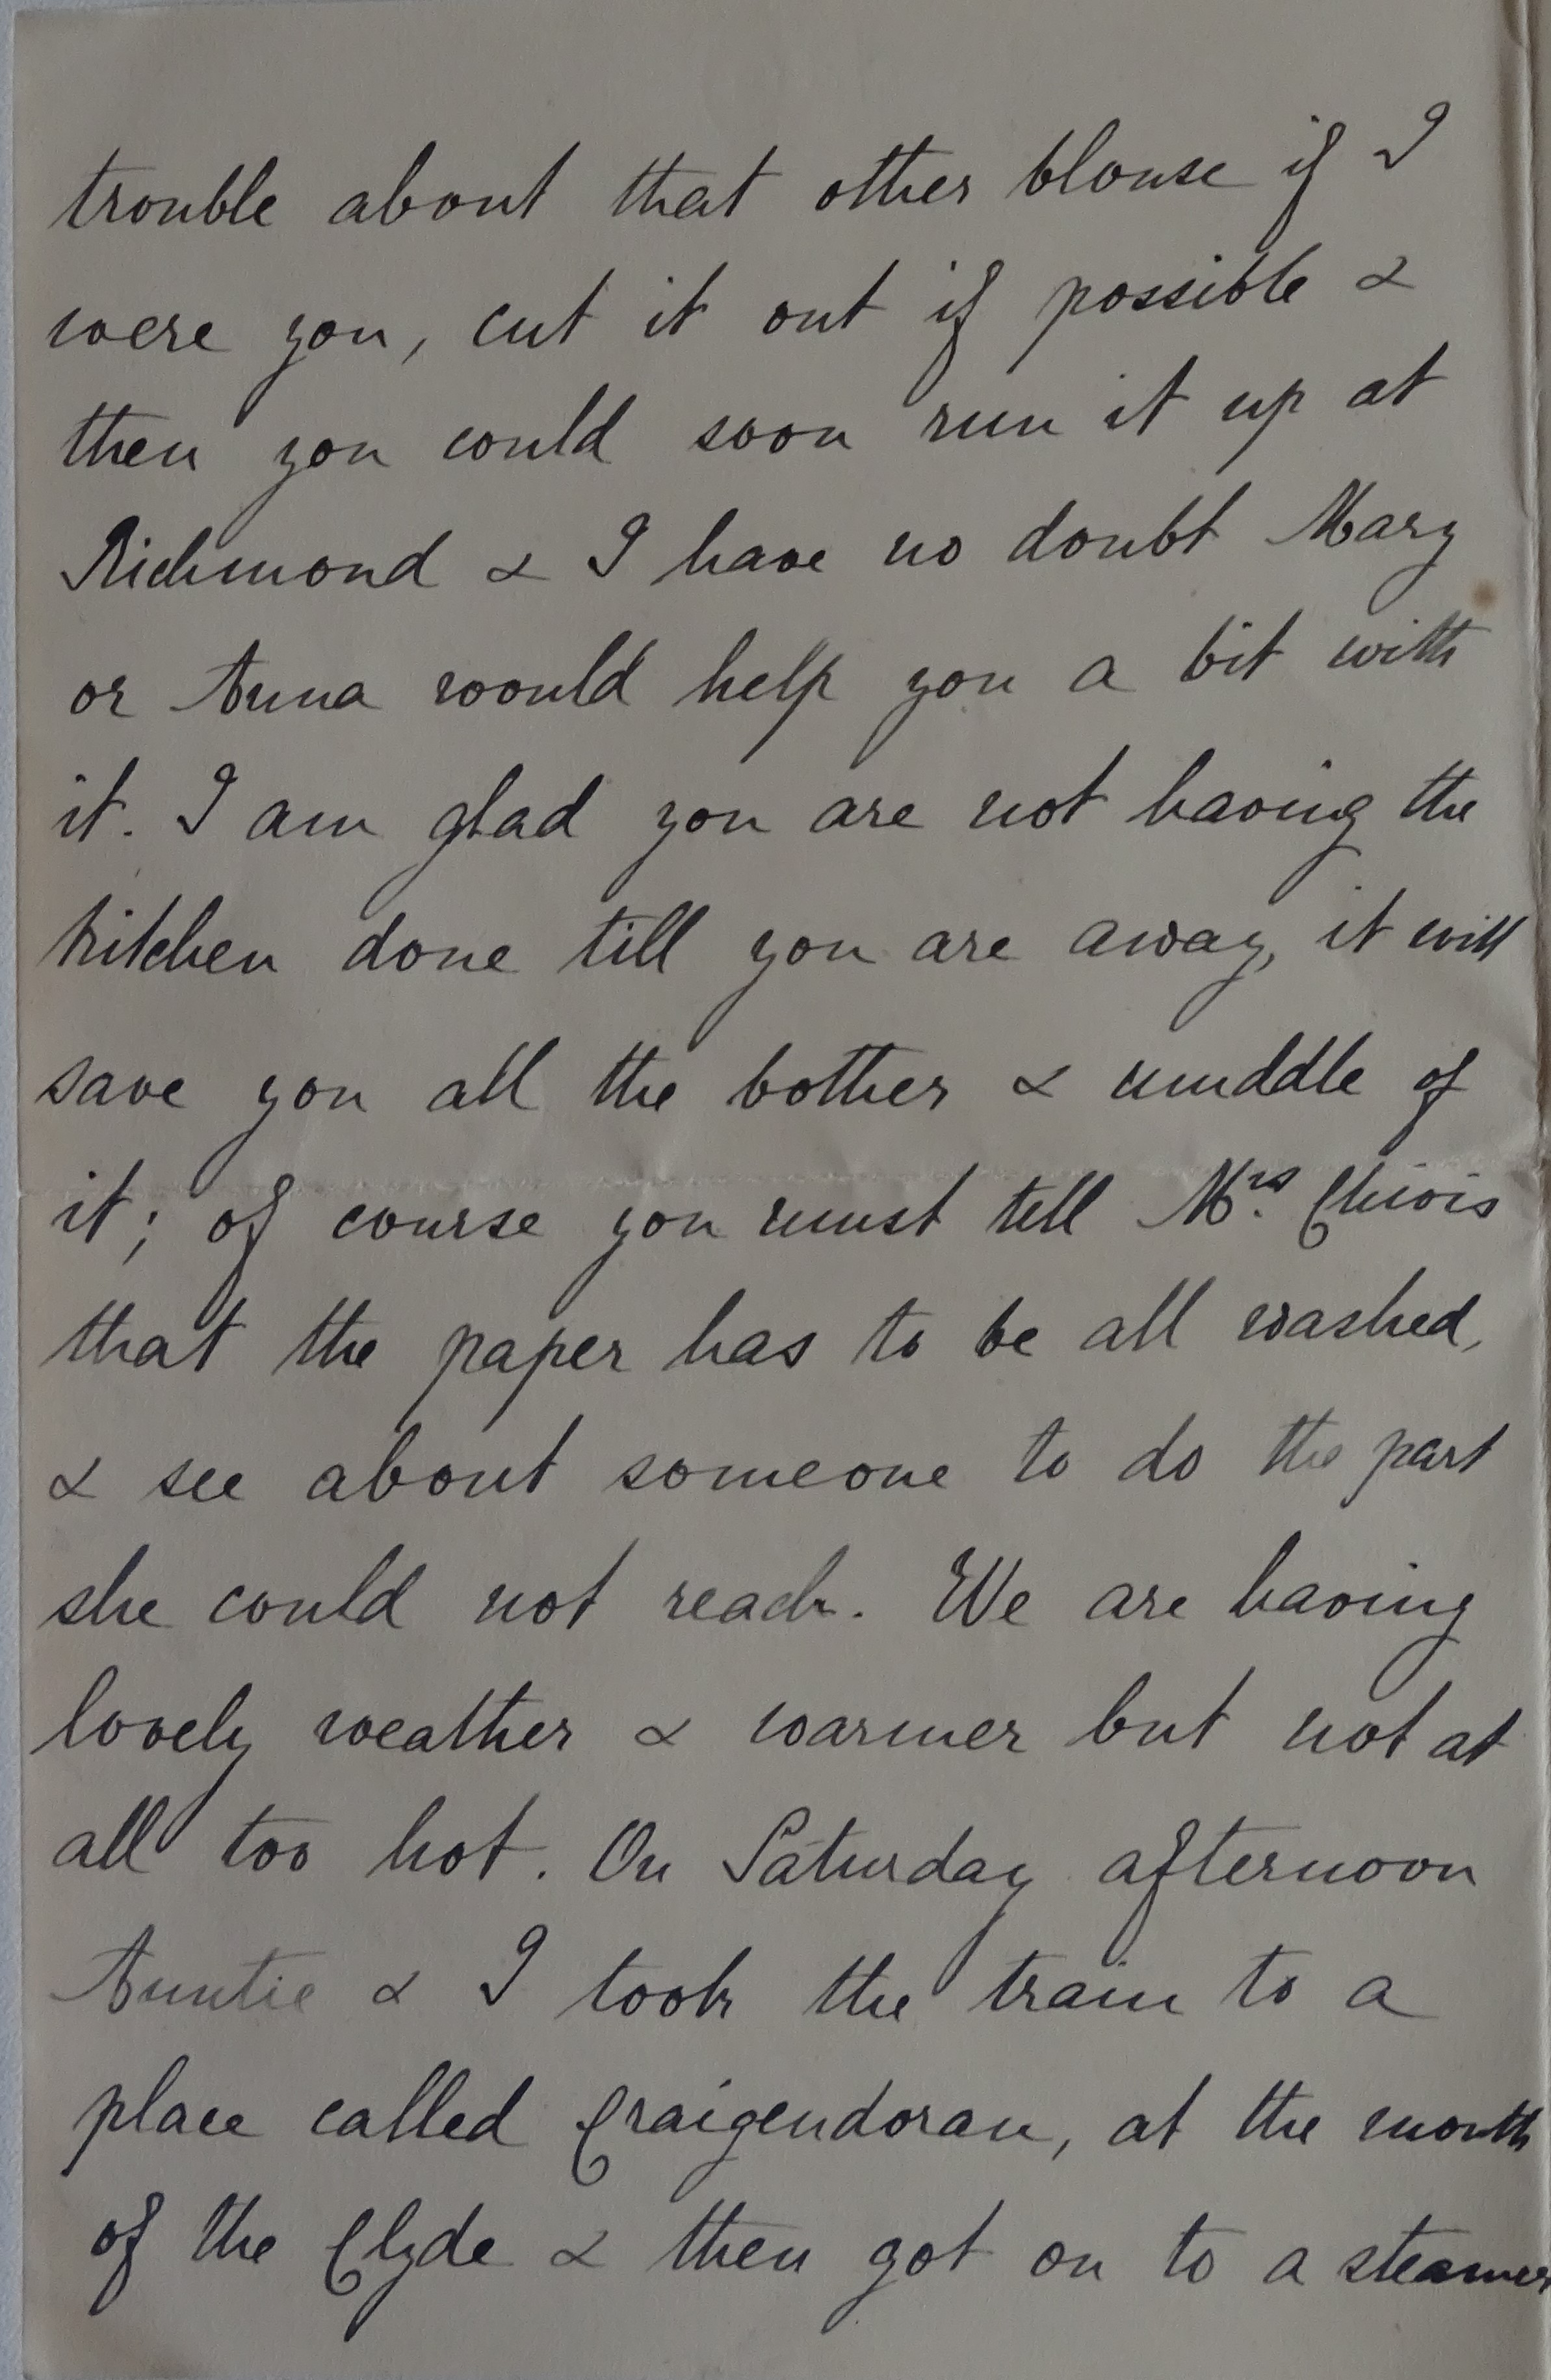 trouble about that other blouse if I
were you, cut it out if possible &
then you could soon run it up at
Richmond & I have no doubt Mary
or Anna would help you a bit with
it. I am glad you are not having the
kitchen done till you are away, it will
save you all the bother & muddle of
it; of course you must tell Mrs.
that the paper has to be all washed,
& see about someone to do the part
she could not reach. We are having
lovely weather & warmer but not at
all too hot. On Saturday afternoon
Auntie & I took the train to a
place called Craigendoran, at the mouth
of the Clyde & then got on to a steamer